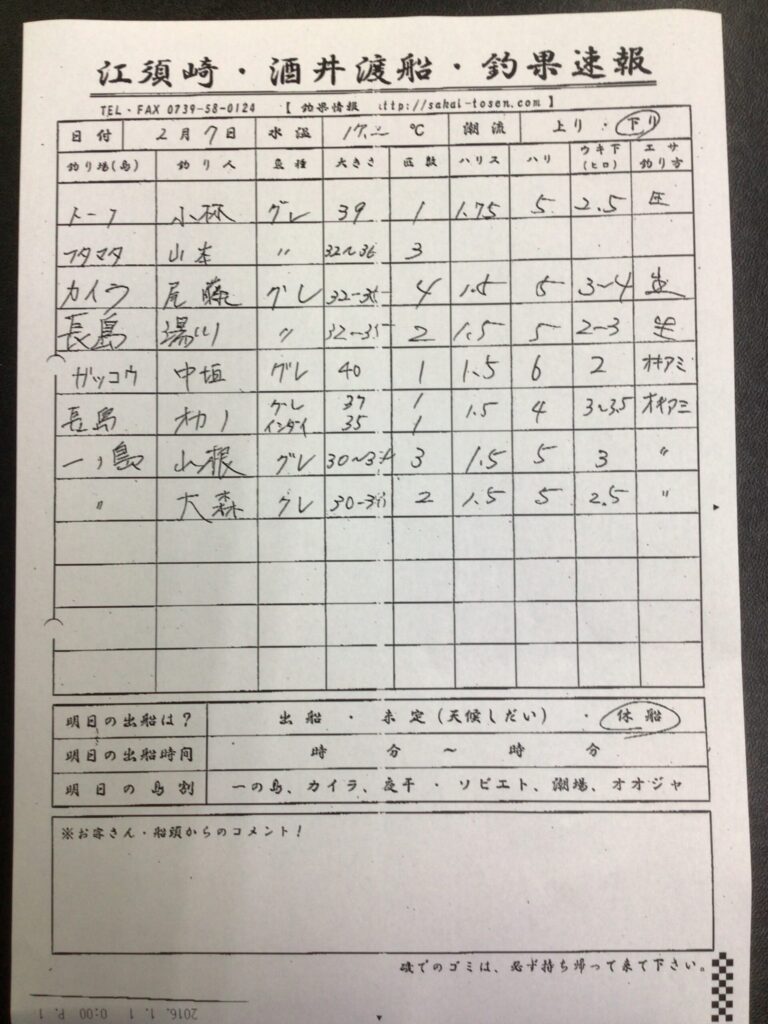 江須崎・酒井渡船・釣果速報
TEL・FAX 0739-58-0124 【 釣果情報 ttp://sakai-tosen.com 】
日付 2月7日 水温 17. ℃ 潮流 上り ・ 下り
釣り場(島) 釣り人 魚種 大きさ 匹数 ハリス ハリ ウキ下(ヒロ) エサ釣り方
小林 グレ 39 1 1.75 5 2.5
フタマタ 山本 〃 32〜36 3
カイラ 尾藤 グレ 32-35 4 1.5 5 3〜4 生
長島 湯川 〃 32-35 2 1.5 5 2-3 生
ガッコウ 中垣 グレ 40 1 1.5 6 2 オキアミ
長島 グレ 37 1 1.5 4 3〜3.5 オキアミ
インダイ 35 1
一ノ島 山根 グレ 30〜34 3 1.5 5 3 〃
〃 大森 グレ 30-3 2 1.5 5 2.5 〃
明日の出船は? 出船 ・ 未定(天候しだい) ・ 休船
明日の出船時間 時 分 〜 時 分
明日の島割 一の島、カイラ、皮干 ・ ソビエト、潮場、オオジャ
※お客さん・船頭からのコメント!
磯でのゴミは、必ず持ち帰って来て下さい。
2016. 1. 1 0:00 P. 1